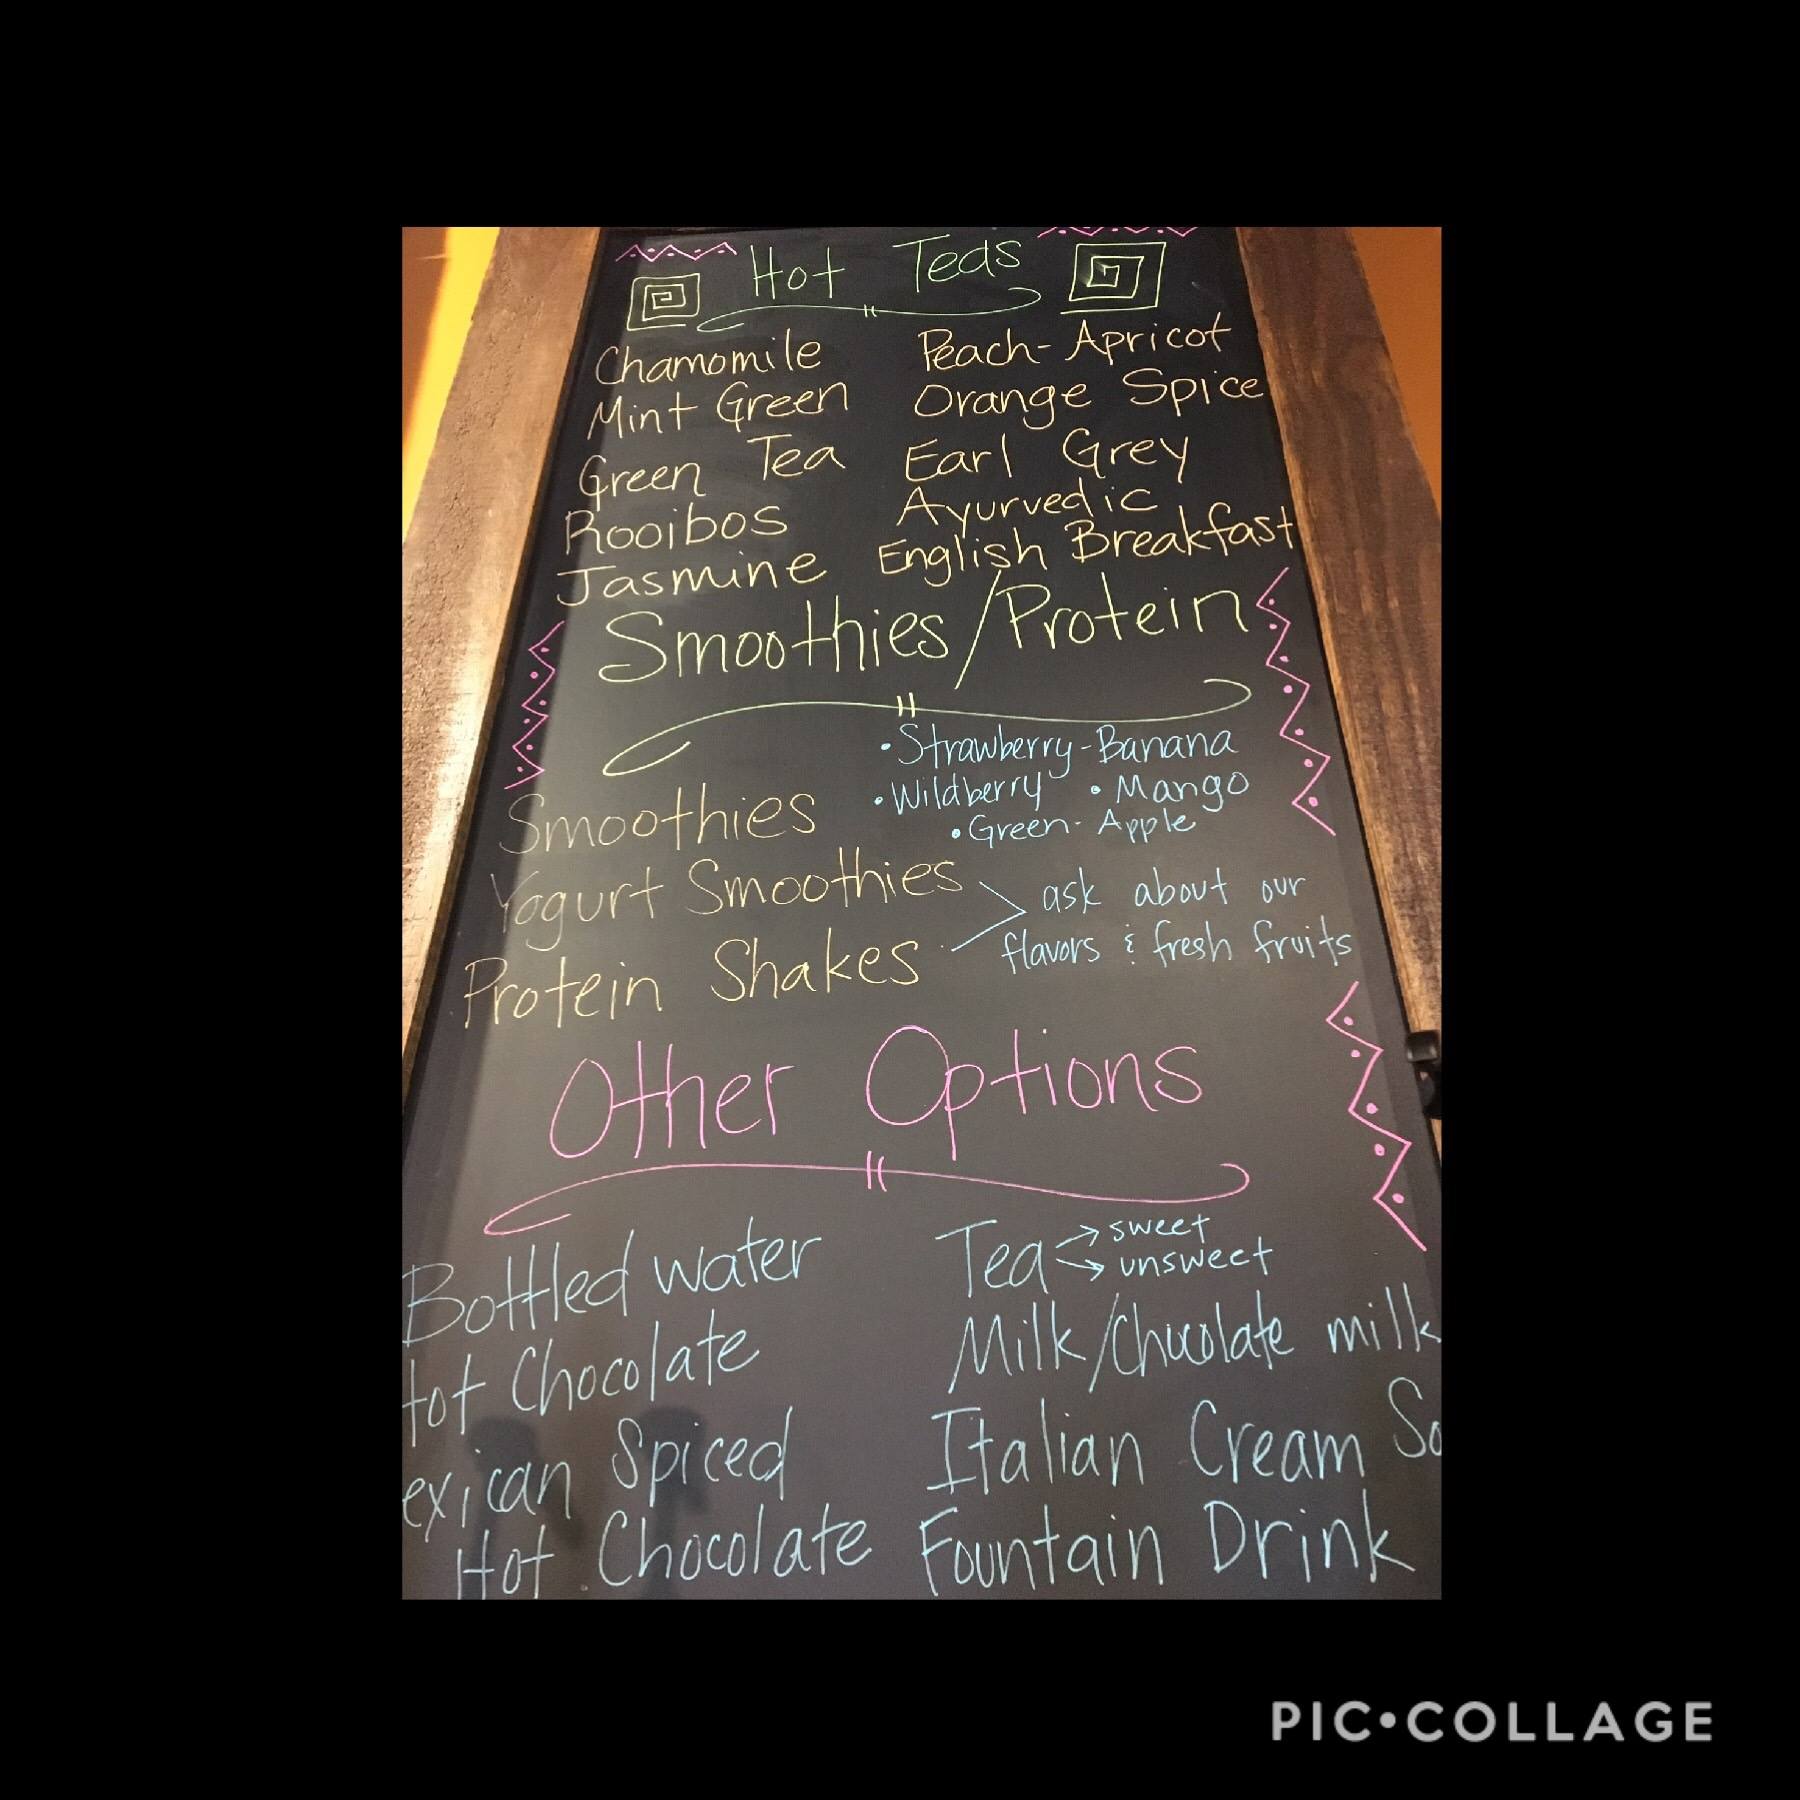 Hot Teas
Chamomile Peach-Apricot
Mint Green Orange Spice
Green Tea Earl Grey
Rooibos Ayurvedic
Jasmine English Breakfast
Smoothies/Protein
• Strawberry-Banana
• Wildberry • Mango
• Green-Apple
Smoothies
Yogurt Smoothies
Protein Shakes
ask about our
flavors & fresh fruits
Other Options
Bottled water
Hot Chocolate
exican Spiced
Hot Chocolate
Tea → sweet
→ unsweet
Milk/Chocolate milk
Italian Cream So
Fountain Drink
PIC•COLLAGE